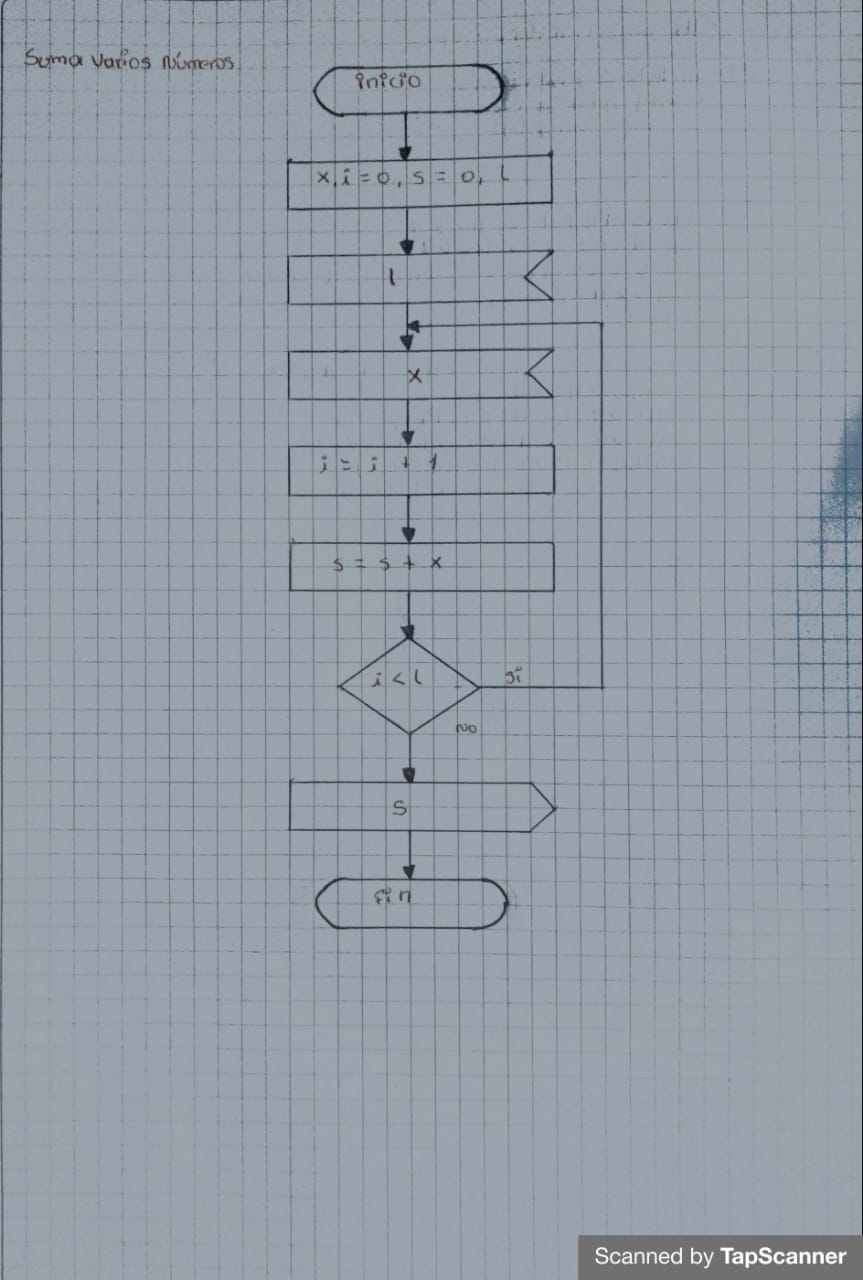 Suma varios números
inicio
x, i = 0, s = 0, l
l
x
i = i + 1
s = s + x
i < l
si
no
s
fin
Scanned by TapScanner